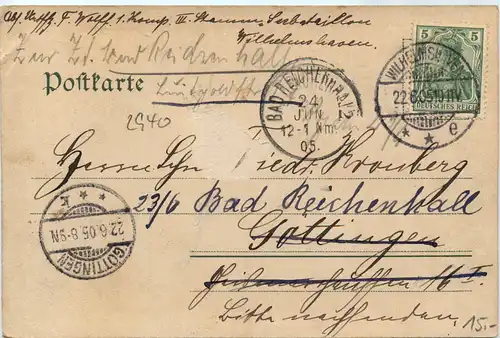 Abs. Uffz. F. Wolff 1. Komp. III. Stamm-Seebataillon
Wilhelmshaven.
Zur Zt. Bad Reichenhall
Postkarte
Luitpoldstr.
5 5
DEUTSCHES REICH
WILHELMSHAVEN
22.6.05.10-11V.
* * e
BAD REICHENHALL 2
24
JUN
12-1 Nm
05.
2940
Herrn Friedr. Kronberg
23/6 Bad Reichenhall
Göttingen
16 I.
Bitte nachsenden.
* * k
22.6.05.8-9N.
GÖTTINGEN
15.-